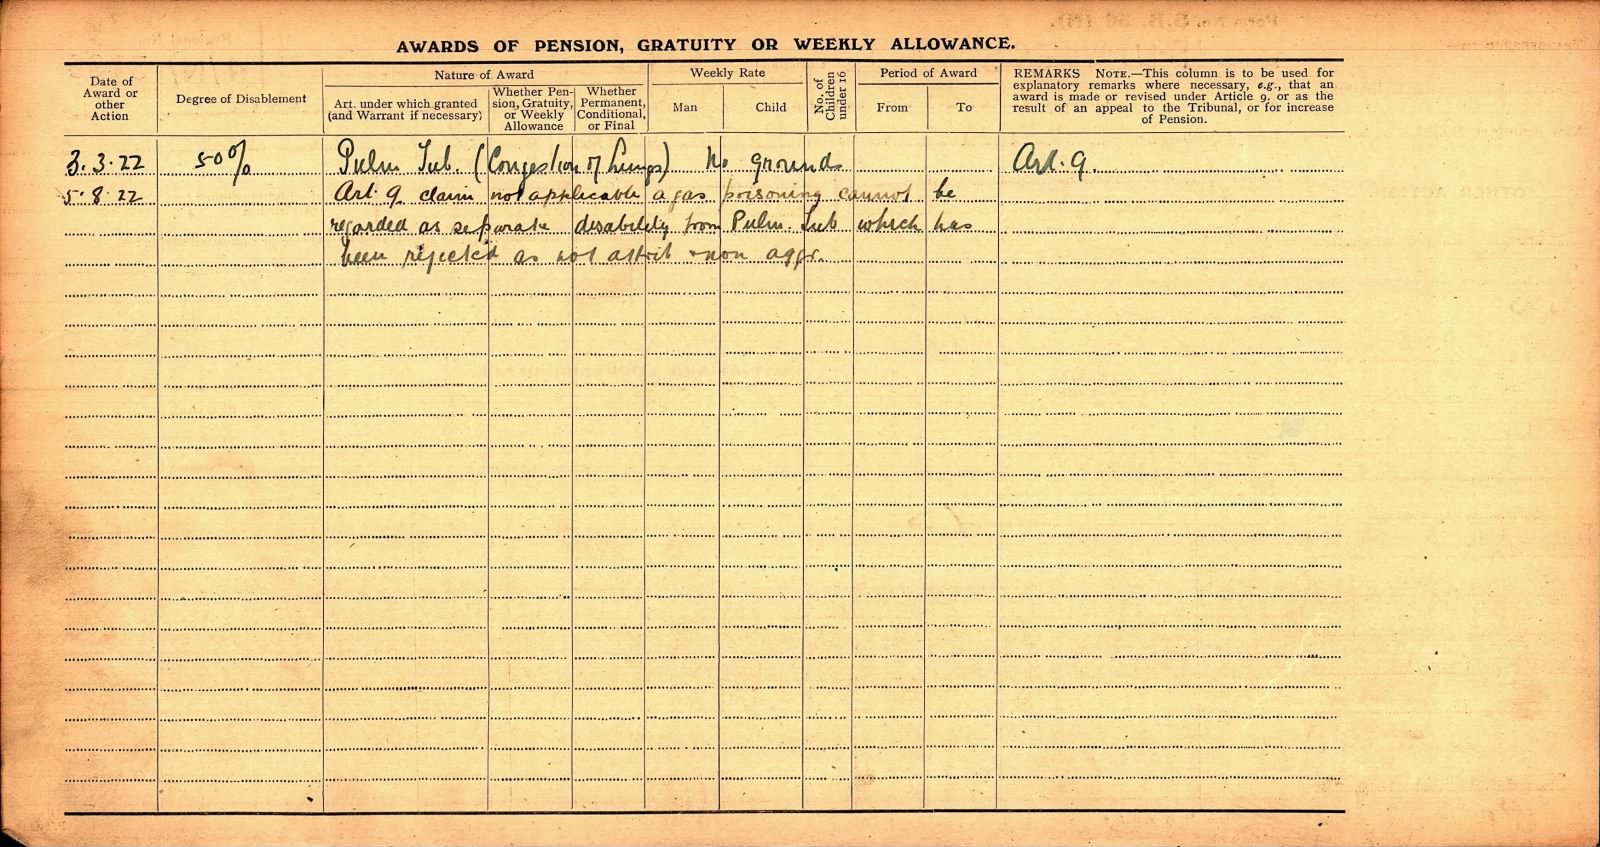 AWARDS OF PENSION, GRATUITY OR WEEKLY ALLOWANCE.
Date of Award or other Action
Degree of Disablement
Nature of Award
Art. under which granted (and Warrant if necessary)
Whether Pension, Gratuity, or Weekly Allowance
Whether Permanent, Conditional, or Final
Weekly Rate
Man
Child
No. of Children under 16
Period of Award
From
To
REMARKS NOTE.—This column is to be used for
explanatory remarks where necessary, e.g., that an
award is made or revised under Article 9, or as the
result of an appeal to the Tribunal, or for increase
of Pension.
3.3.22 50% Pulm Tub. (Congestion of Lungs) No grounds Art. 9.
5.8.22 Art. 9 claim not applicable a gas poisoning cannot be
regarded as separate disability from Pulm. Tub which has
been rejected as not attrib & non aggr.